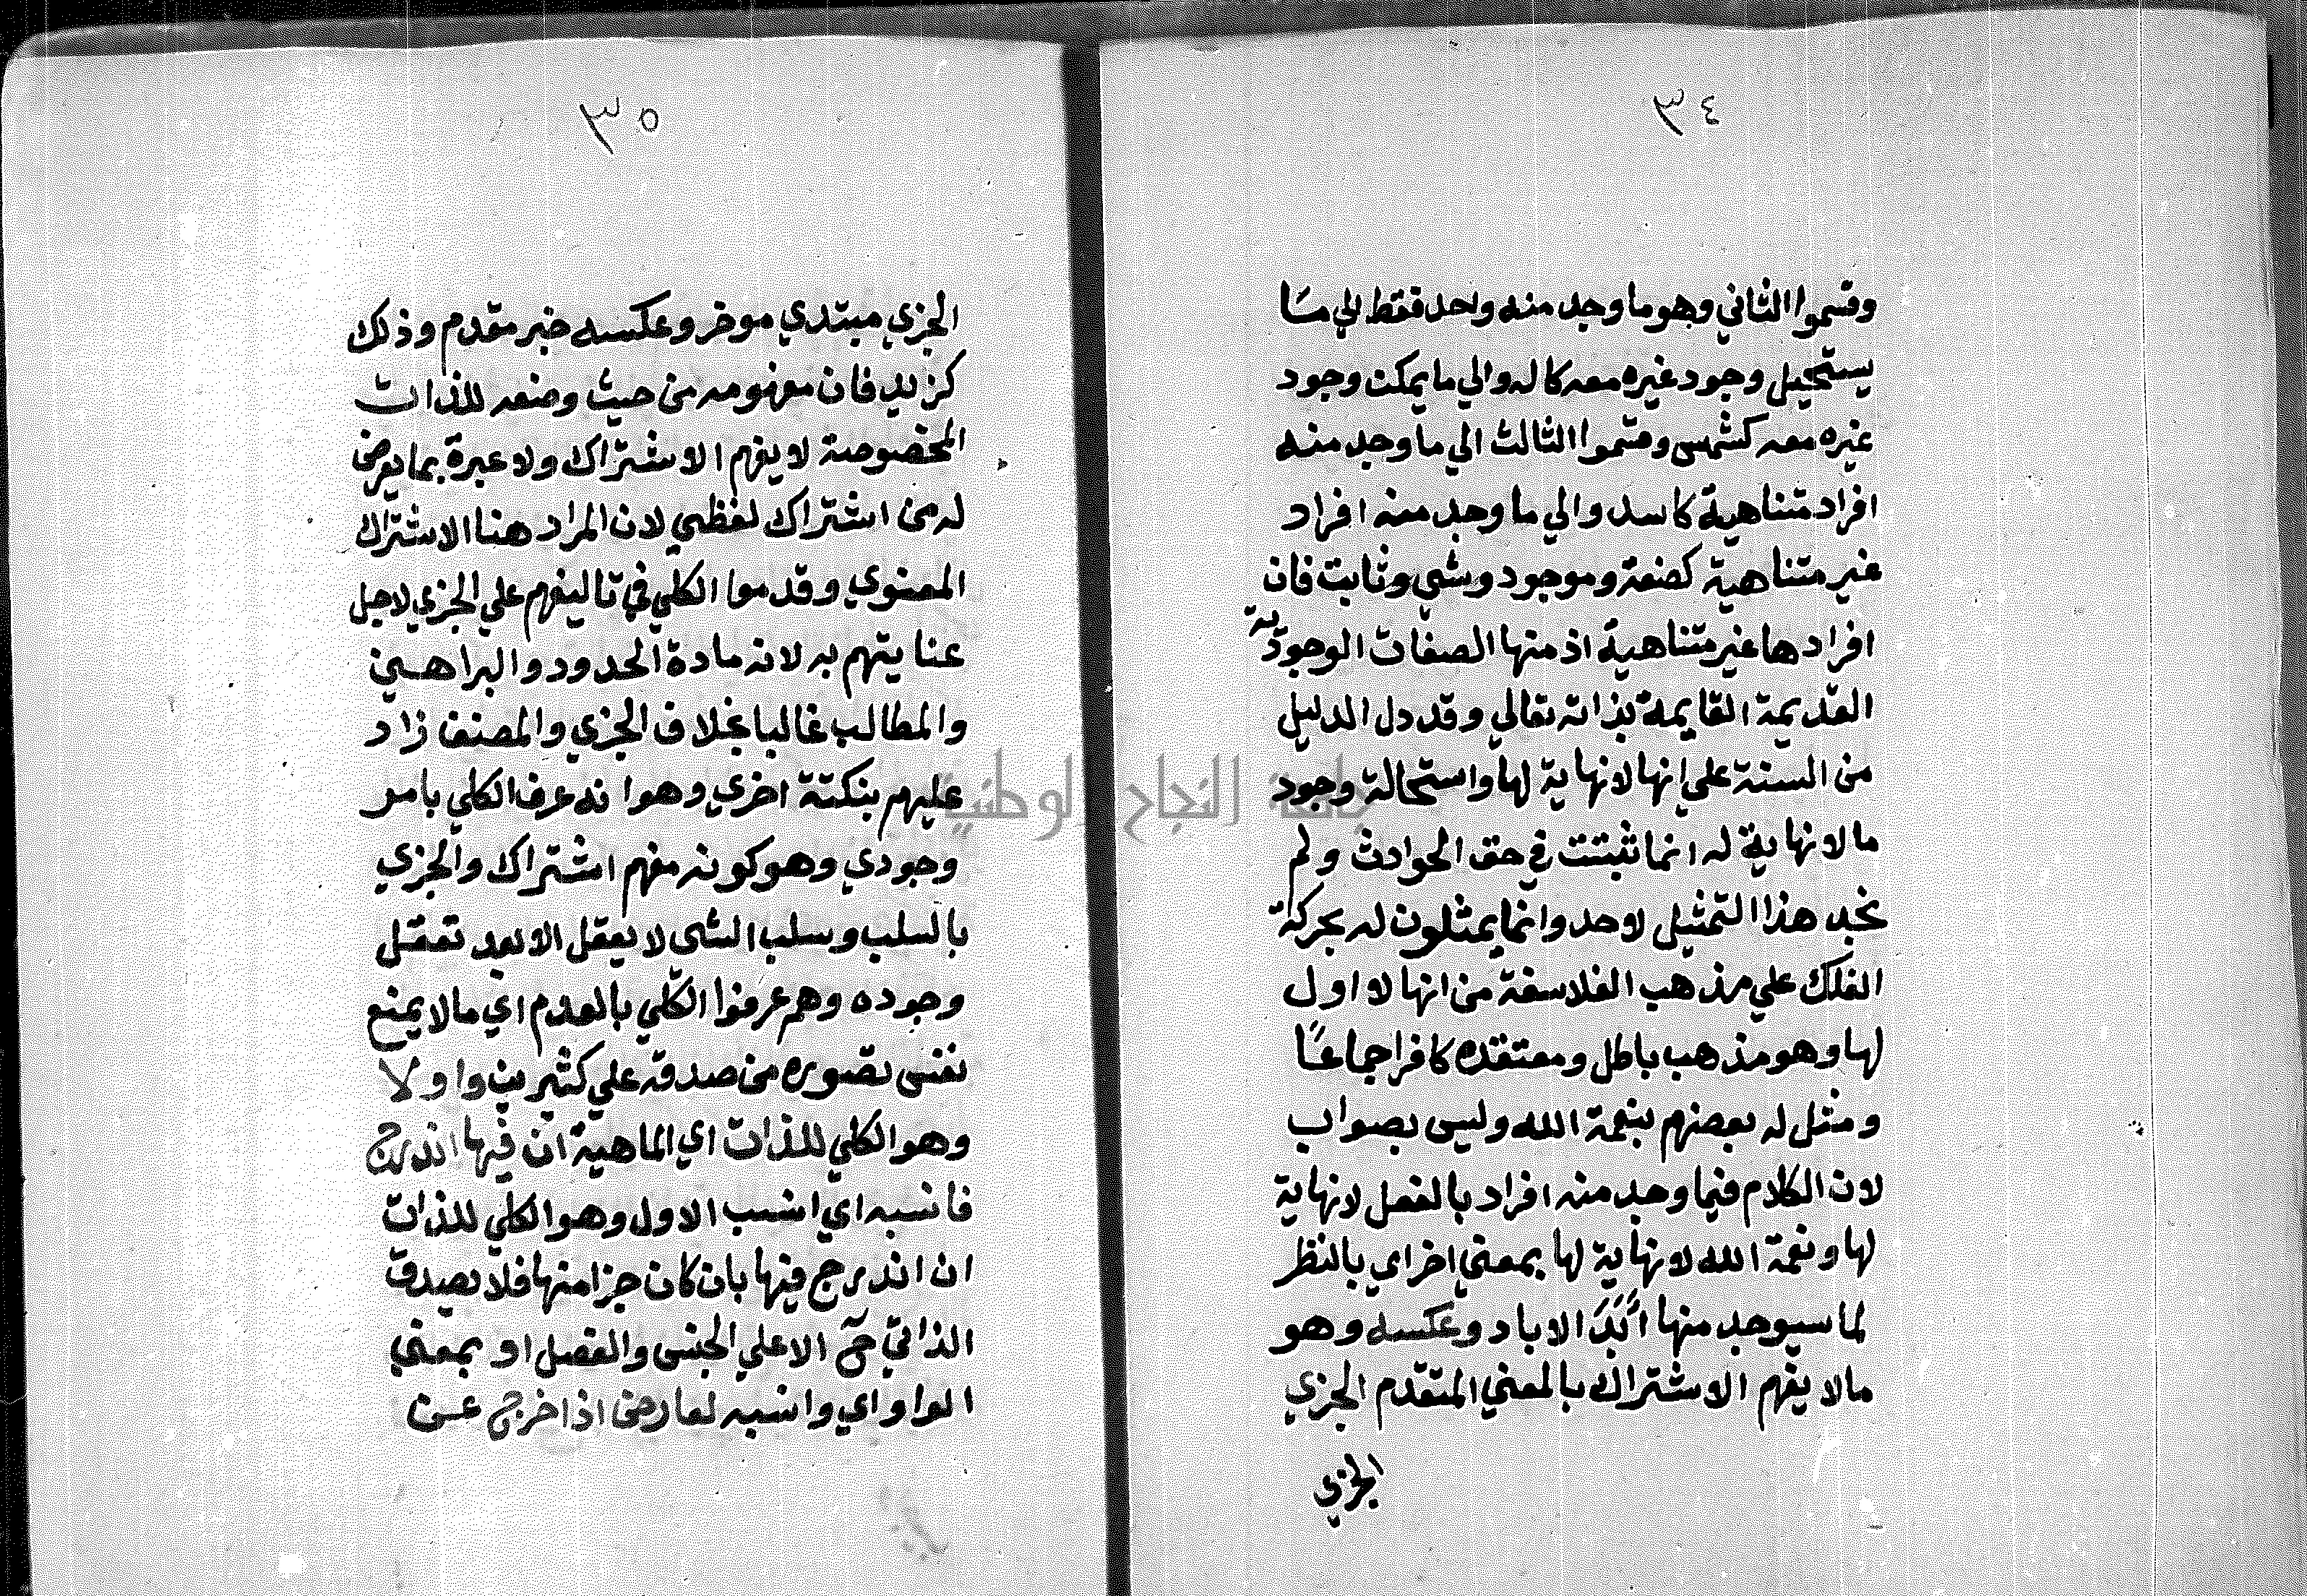 ٣٤
وقسموا الثاني وهو ما وجد منه واحد فقط الي ما
يستحيل وجود غيره معه كاله والي ما يمكن وجود
غيره معه كشمس وقسموا الثالث الي ما وجد منه
افراد متناهية كاسد والي ما وجد منه افراد
غير متناهية كصفة وموجود وشي وثابت فان
افرادها غير متناهية اذ منها الصفات الوجودية
القديمة القايمة بذاته تعالي وقد دل الدليل
من السنة علي انها لا نهاية لها واستحالة وجود
ما لا نهاية له انما ثبتت في حق الحوادث ولم
نجد هذا التمثيل لاحد وانما يمثلون له بحركة
الفلك علي مذهب الفلاسفة من انها لا اول
لها وهو مذهب باطل ومعتقده كافر اجماعًا
ومثل له بعضهم بنعمة الله وليس بصواب
لان الكلام فيما وجد منه افراد بالفعل لا نهاية
لها ونعمة الله لا نهاية لها بمعني اخر اي بالنظر
لما سيوجد منها أَبَدَ الاباد وعكسه وهو
ما لا يفهم الاشتراك بالمعني المتقدم الجزي
الجزي
٣٥
الجزي مبتدي موخر وعكسه خبر مقدم وذلك
كزيد فان مفهومه من حيث وضعه للذات
المخصوصة لا يفهم الاشتراك ولا عبرة بما يعرض
له من اشتراك لفظي لان المراد هنا الاشتراك
المعنوي وقدموا الكلي في تاليفهم علي الجزي لاجل
عنايتهم به لانه مادة الحدود والبراهين
والمطالب غالبا بخلاف الجزي والمصنف زاد
عليهم بنكتة اخري وهو انه عرف الكلي بامر
وجودي وهو كونه مفهم اشتراك والجزي
بالسلب وسلب الشي لا يعقل الا بعد تعقل
وجوده وهم عرفوا الكلي بالعدم اي ما لا يمنع
نفس تصوره من صدقه علي كثيرين واولا
وهو الكلي للذات اي الماهية ان فيها اندرج
فانسبه اي انسب الاول وهو الكلي للذات
ان اندرج فيها بان كان جزا منها فلا يصدق
الذاتي ح الا علي الجنس والفصل او بمعني
الواو اي وانسبه لعارض اذا خرج عن
جامعة النجاح الوطنية